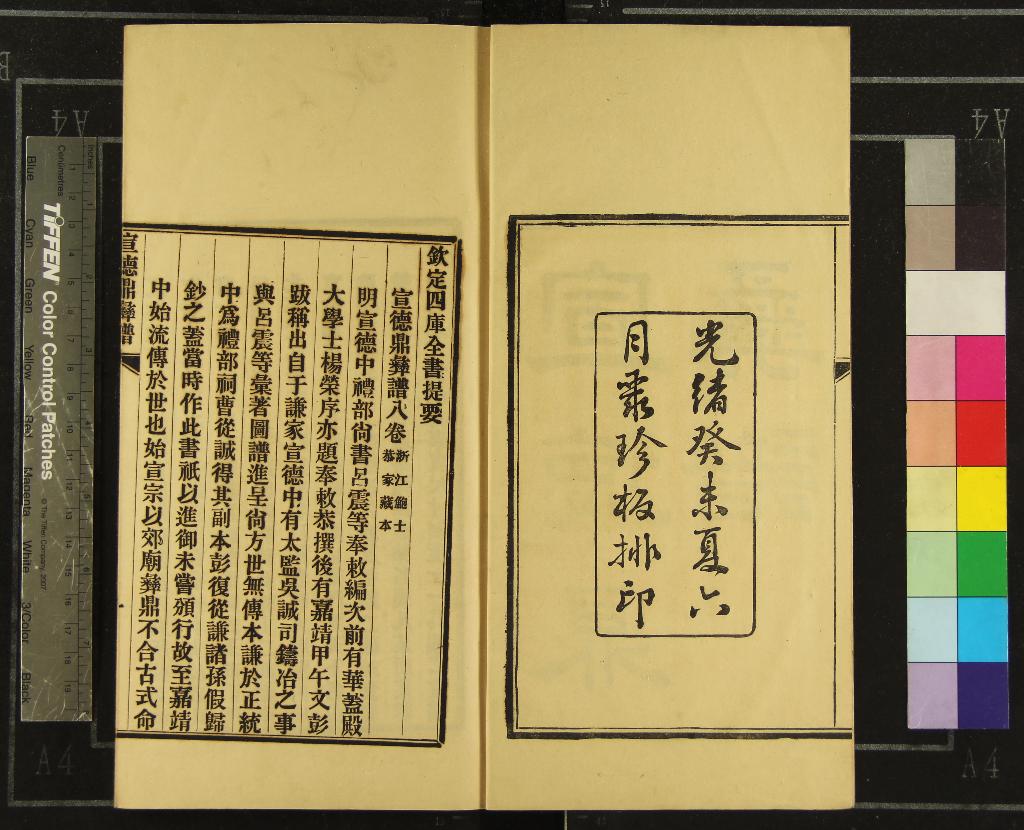 光緒癸未夏六
月聚珍板排印
欽定四庫全書提要
宣德鼎彝譜八卷 浙江鮑士
恭家藏本
明宣德中禮部尙書呂震等奉敕編次前有華蓋殿
大學士楊榮序亦題奉敕恭撰後有嘉靖甲午文彭
跋稱出自于謙家宣德中有太監吳誠司鑄冶之事
與呂震等彙著圖譜進呈尙方世無傳本謙於正統
中爲禮部祠曹從誠得其副本彭復從謙諸孫假歸
鈔之蓋當時作此書祇以進御未嘗頒行故至嘉靖
中始流傳於世也始宣宗以郊廟彝鼎不合古式命
宣德鼎彝譜
Inches
Centimetres
TIFFEN Color Control Patches
© The Tiffen Company, 2007
Blue
Cyan
Green
Yellow
Red
Magenta
White
3/Color
Black
A4
A4
A4
A4
B